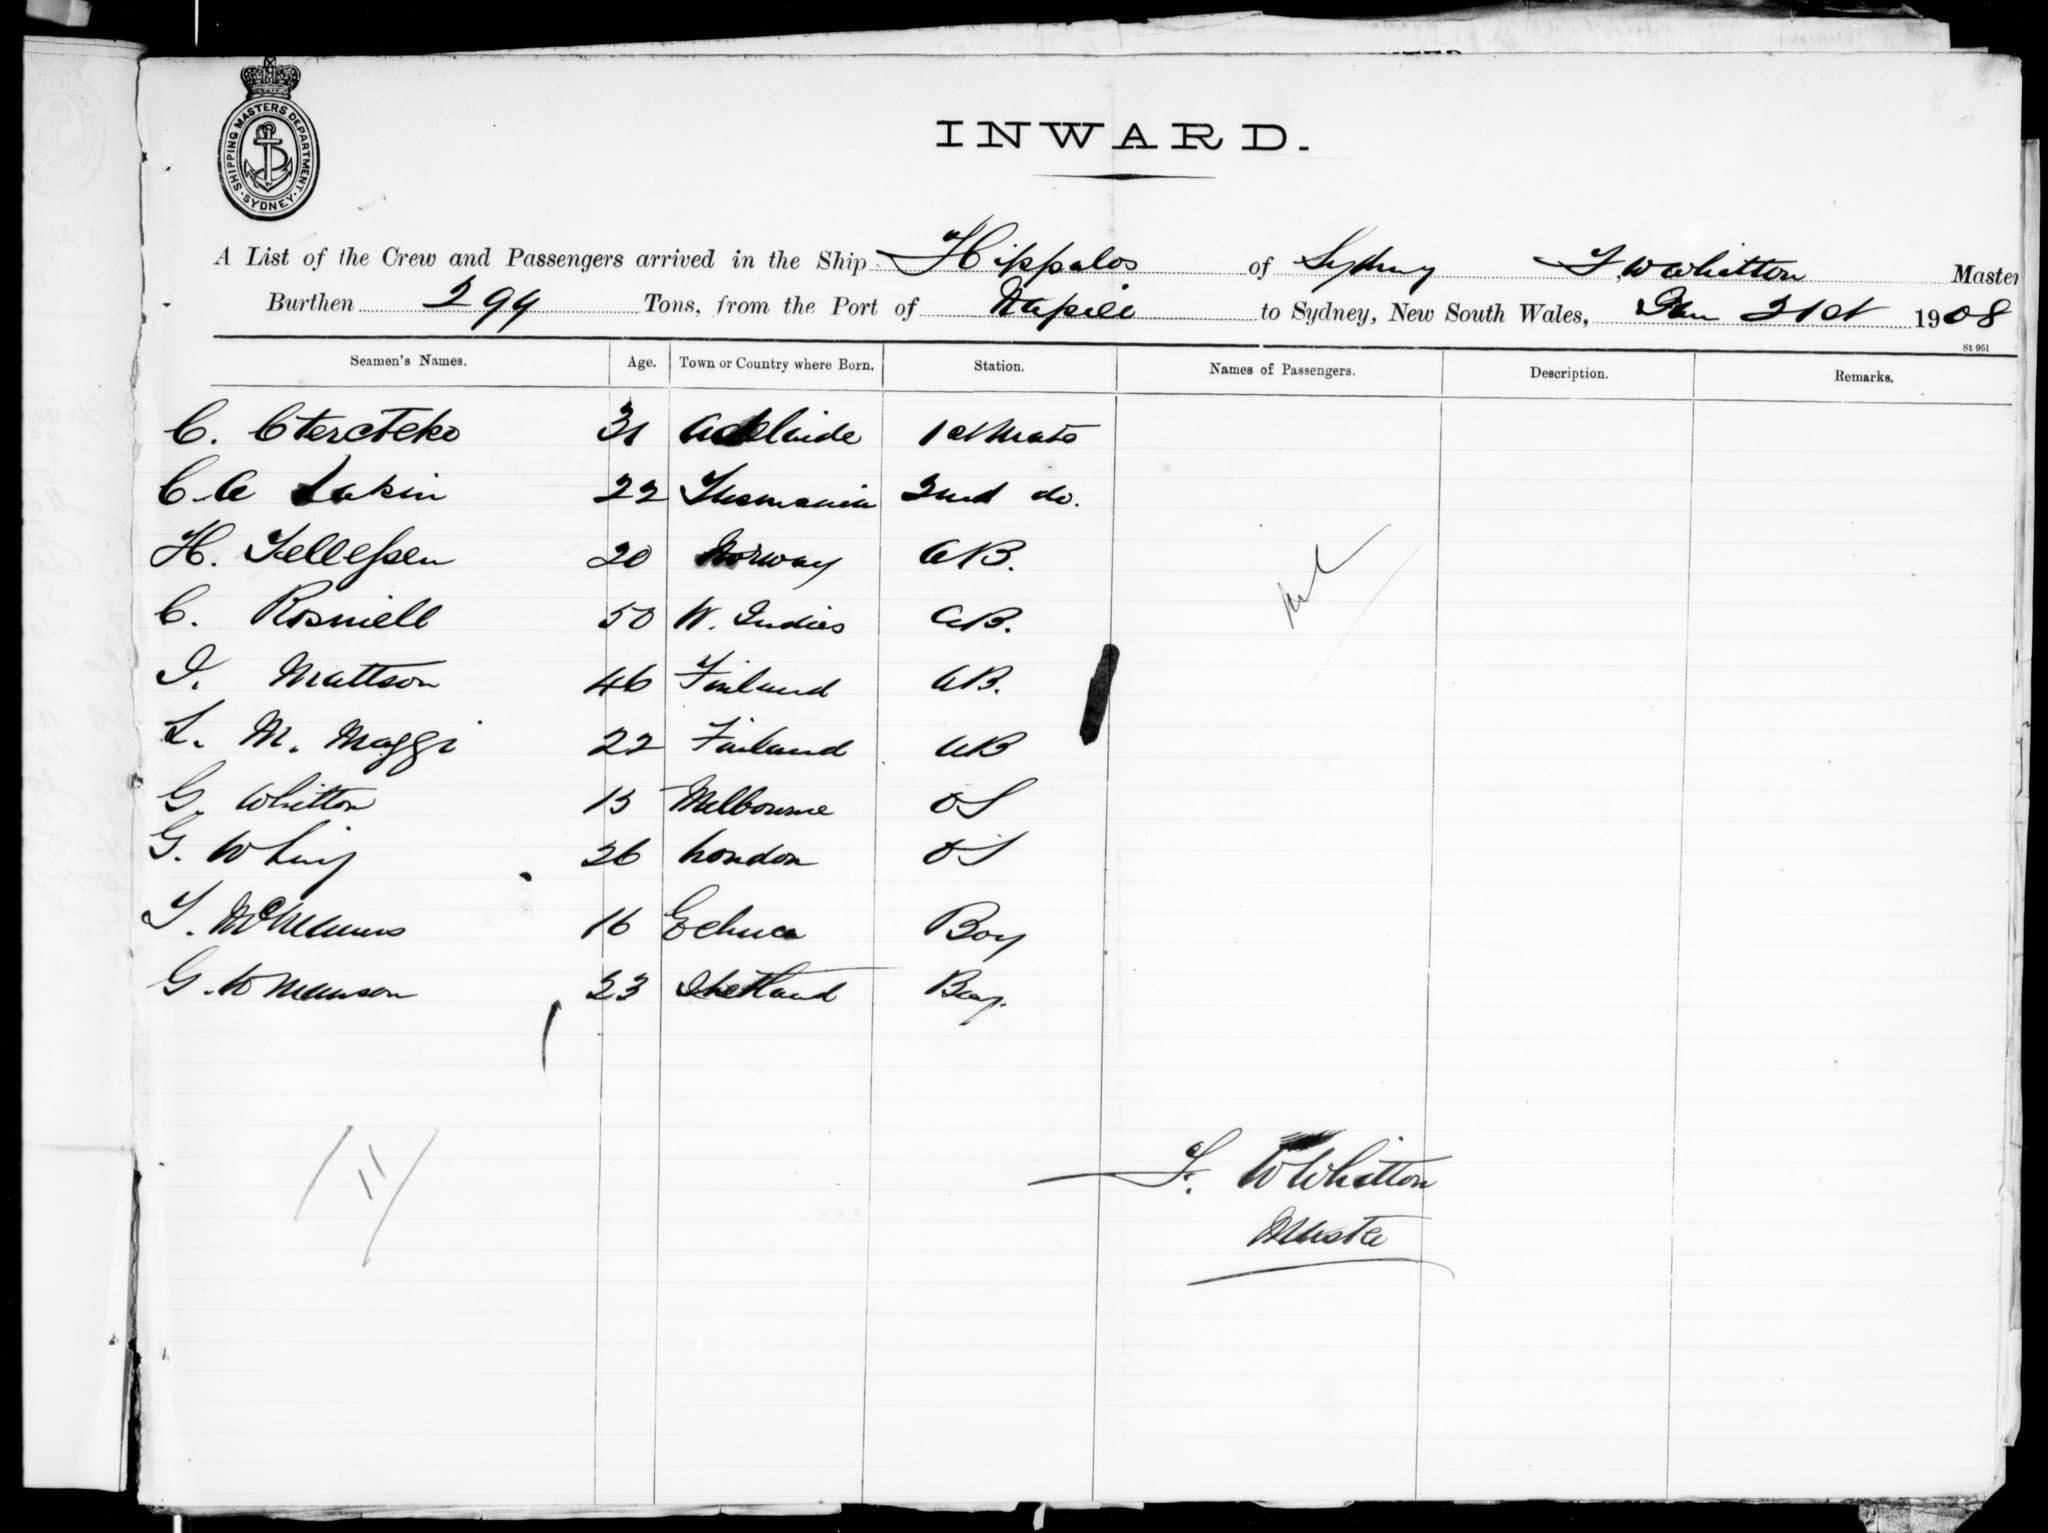 SHIPPING MASTERS DEPARTMENT. SYDNEY.
INWARD.
A List of the Crew and Passengers arrived in the Ship Hippalos of Sydney F. W Whitton Master
Burthen 294 Tons, from the Port of to Sydney, New South Wales, Jan 21st 1908
St 951
Seamen's Names. Age. Town or Country where Born. Station. Names of Passengers. Description. Remarks.
C. 31 Adelaide 1st Mate
C. A Lakin 22 Tasmania 2nd do.
H. Tellefsen 20 Norway AB.
C. Rosniell 50 W. Indies AB.
I. Mattson 46 Finland AB.
L. M. Maggi 22 Finland AB
G. Whitton 15 Melbourne OS
G. W 26 London OS
T. McManus 16 Echuca Boy
G. W Manson 23 Shetland Boy.
nil
/ 11 /
F. W Whitton
Master